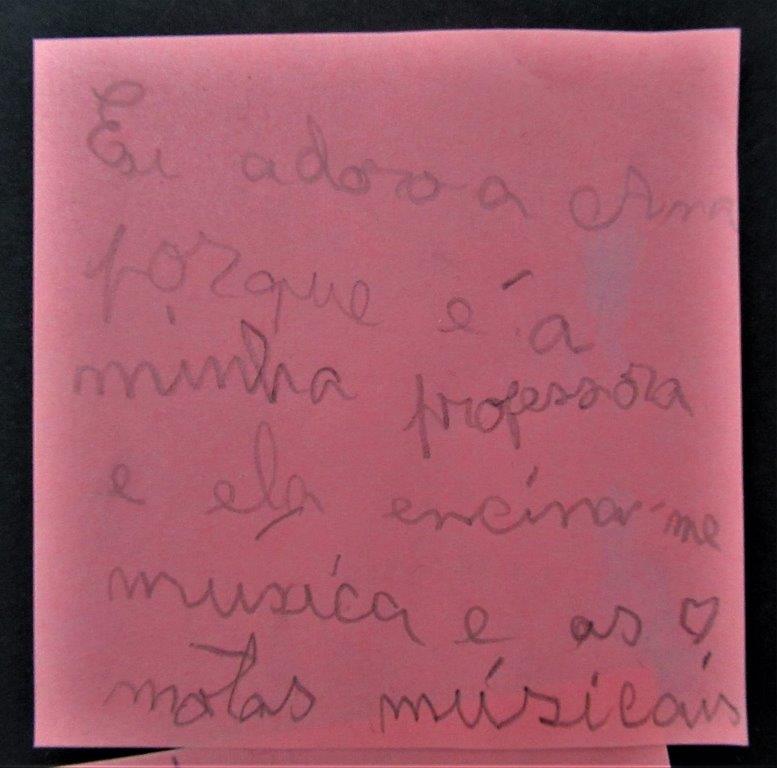 Eu adoro a Ana
porque é a
minha professora
e ela encina-me
musica e as ♡
notas músicais